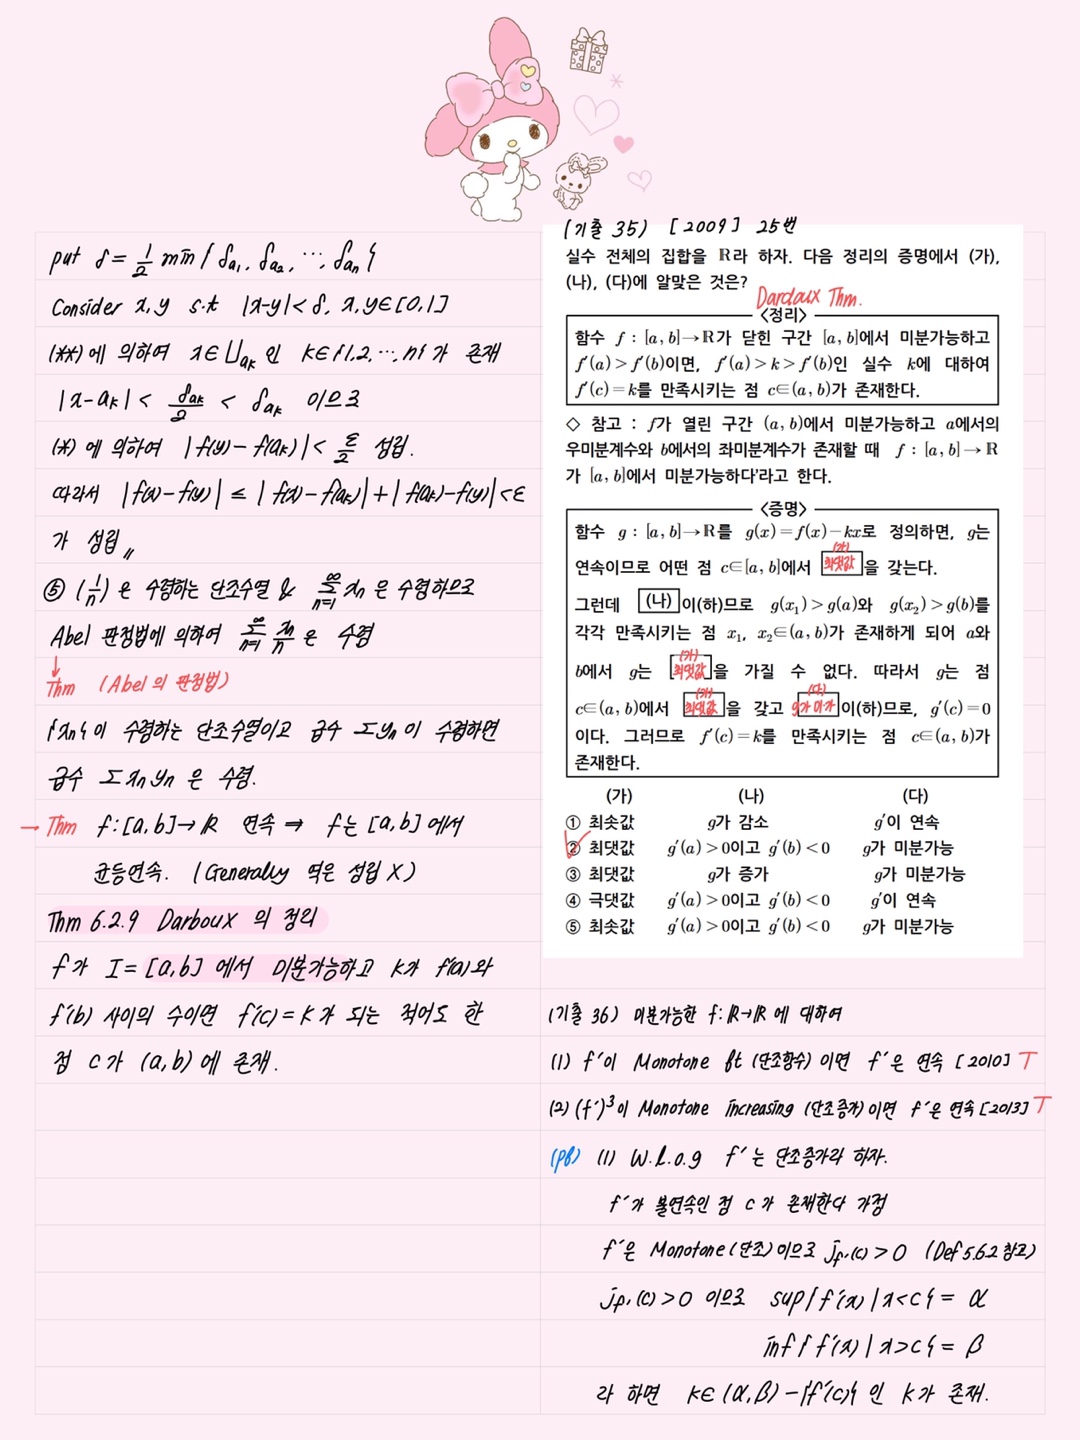 put δ = 1/2 min { δa₁, δa₂, ⋯, δaₙ }
Consider x, y s.t |x-y| < δ, x, y ∈ [0,1]
(**)에 의하여 x ∈ ⋃aₖ 인 k ∈ {1,2,⋯,n}가 존재
|x-aₖ| < δaₖ/2 < δaₖ 이므로
(*)에 의하여 |f(y)-f(aₖ)| < ε/2 성립.
따라서 |f(x)-f(y)| ≤ |f(x)-f(aₖ)| + |f(aₖ)-f(y)| < ε
가 성립 〃
⑤ (1/n)은 수렴하는 단조수열 & ∑_{n=1}^{∞} xₙ 은 수렴하므로
Abel 판정법에 의하여 ∑_{n=1}^{∞} xₙ/n 은 수렴
↓
Thm (Abel의 판정법)
{xₙ}이 수렴하는 단조수열이고 급수 ∑yₙ이 수렴하면
급수 ∑xₙyₙ은 수렴.
→ Thm f: [a,b] → ℝ 연속 ⇒ f는 [a,b]에서
균등연속. (Generally 역은 성립 X)
Thm 6.2.9 Darboux의 정리
f가 I = [a,b]에서 미분가능하고 k가 f'(a)와
f'(b) 사이의 수이면 f'(c) = k가 되는 적어도 한
점 c가 (a,b)에 존재.
(기출 35) [2009] 25번
실수 전체의 집합을 ℝ라 하자. 다음 정리의 증명에서 (가),
(나), (다)에 알맞은 것은?
Darboux Thm.
〈정리〉
함수 f : [a, b]→ℝ가 닫힌 구간 [a, b]에서 미분가능하고
f'(a) > f'(b)이면, f'(a) > k > f'(b)인 실수 k에 대하여
f'(c) = k를 만족시키는 점 c∈(a, b)가 존재한다.
◇ 참고 : f가 열린 구간 (a, b)에서 미분가능하고 a에서의
우미분계수와 b에서의 좌미분계수가 존재할 때 f : [a, b]→ℝ
가 [a, b]에서 미분가능하다'라고 한다.
〈증명〉
함수 g : [a, b]→ℝ를 g(x) = f(x) − kx로 정의하면, g는
연속이므로 어떤 점 c∈[a, b]에서 (가) 최댓값 을 갖는다.
그런데 (나) 이(하)므로 g(x₁) > g(a)와 g(x₂) > g(b)를
각각 만족시키는 점 x₁, x₂∈(a, b)가 존재하게 되어 a와
b에서 g는 (가) 최댓값 을 가질 수 없다. 따라서 g는 점
c∈(a, b)에서 (가) 최댓값 을 갖고 (다) g가 미가 이(하)므로, g'(c) = 0
이다. 그러므로 f'(c) = k를 만족시키는 점 c∈(a, b)가
존재한다.
(가) (나) (다)
① 최솟값 g가 감소 g'이 연속
② 최댓값 g'(a) > 0이고 g'(b) < 0 g가 미분가능
③ 최댓값 g가 증가 g가 미분가능
④ 극댓값 g'(a) > 0이고 g'(b) < 0 g'이 연속
⑤ 최솟값 g'(a) > 0이고 g'(b) < 0 g가 미분가능
(기출 36) 미분가능한 f: ℝ→ℝ에 대하여
(1) f'이 Monotone ft (단조함수) 이면 f'은 연속 [2010] T
(2) (f')³이 Monotone increasing (단조증가)이면 f'은 연속 [2013] T
(pf) (1) W.l.o.g f'는 단조증가라 하자.
f'가 불연속인 점 c가 존재한다 가정
f'은 Monotone(단조)이므로 j_f'(c) > 0 (Def 5.6.2 참고)
j_f'(c) > 0 이므로 sup{f'(x) | x<c} = α
inf{f'(x) | x>c} = β
라 하면 k ∈ (α,β) − {f'(c)} 인 k가 존재.